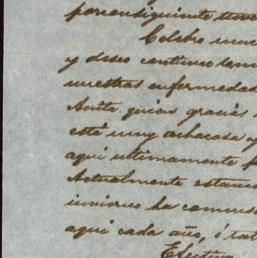 porconsiguiente tuve
Celebro
y deseo continue
nuestras enfermedad
Anita quien gracias
está muy achacosa y
aquí ultimamente
Actualmente estamo
invierno ha comens
aquí cada año, ó
Efectiva